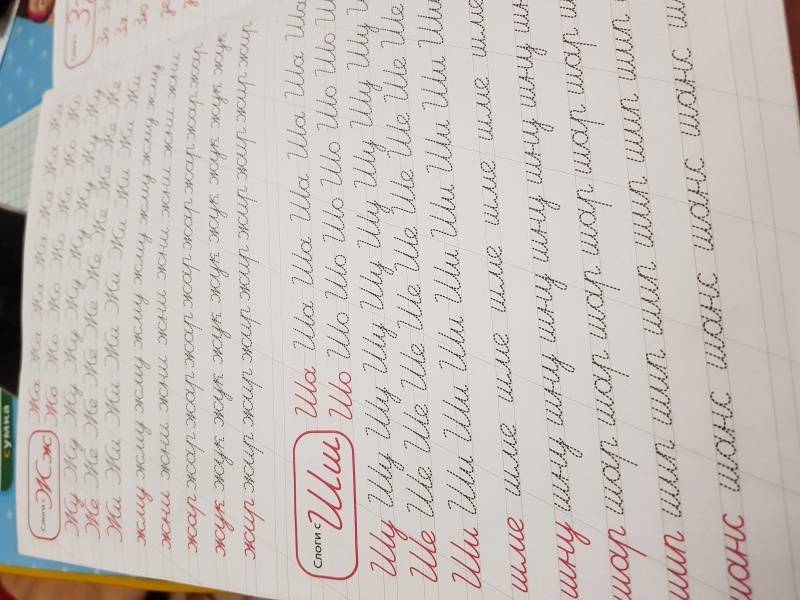 сумка
Слоги с Жж
Жа Жа Жа Жа Жа Жа Жа
Жо Жо Жо Жо Жо Жо Жо
Жу Жу Жу Жу Жу Жу Жу Жу Жу
Же Же Же Же Же Же Же Же Же
Жи Жи Жи Жи Жи Жи Жи Жи Жи
жму жму жму жму жму жму жму жму
жни жни жни жни жни жни жни жни
жар жар жар жар жар жар жар жар
жук жук жук жук жук жук жук жук
жир жир жир жир жир жир жир жир
Слоги с Шш
Ша Ша Ша Ша Ша Ша Ша
Шо Шо Шо Шо Шо Шо Шо Шо
Шу Шу Шу Шу Шу Шу Шу Шу Шу
Ше Ше Ше Ше Ше Ше Ше Ше Ше
Ши Ши Ши Ши Ши Ши Ши Ши Ши
шле шле шле шле шле шле шле
шну шну шну шну шну шну
шар шар шар шар шар шар
шип шип шип шип шип шип
шанс шанс шанс шанс шанс